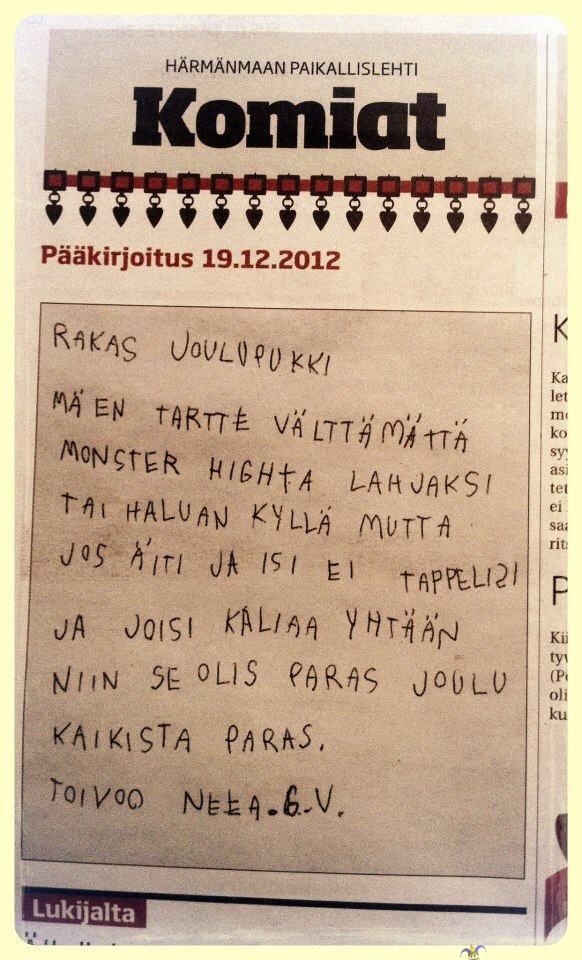 HÄRMÄNMAAN PAIKALLISLEHTI
Komiat
Pääkirjoitus 19.12.2012
RAKAS JOULUPUKKI
MÄ EN TARTTE VÄLTTÄMÄTTÄ
MONSTER HIGHTA LAHJAKSI
TAI HALUAN KYLLÄ MUTTA
JOS ÄITI JA ISI EI TAPPELISI
JA JOISI KALIAA YHTÄÄN
NIIN SE OLIS PARAS JOULU
KAIKISTA PARAS.
TOIVOO NEEA.6.V.
Lukijalta
K
Ka
let
me
ko
syy
asi
tet
ei
saa
rits
P
Kii
tyv
(Po
oli
ku